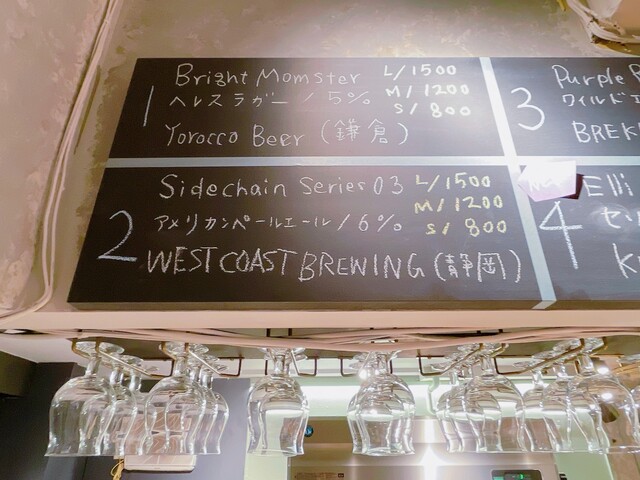 1
Bright Momster L/1500
ヘレスラガー/5% M/1200
S/800
Yorocco Beer (鎌倉)
2
Sidechain Series 03 L/1500
アメリカンペールエール/6% M/1200
S/800
WEST COAST BREWING (静岡)
3
Purple
ワイルド
4
Elli